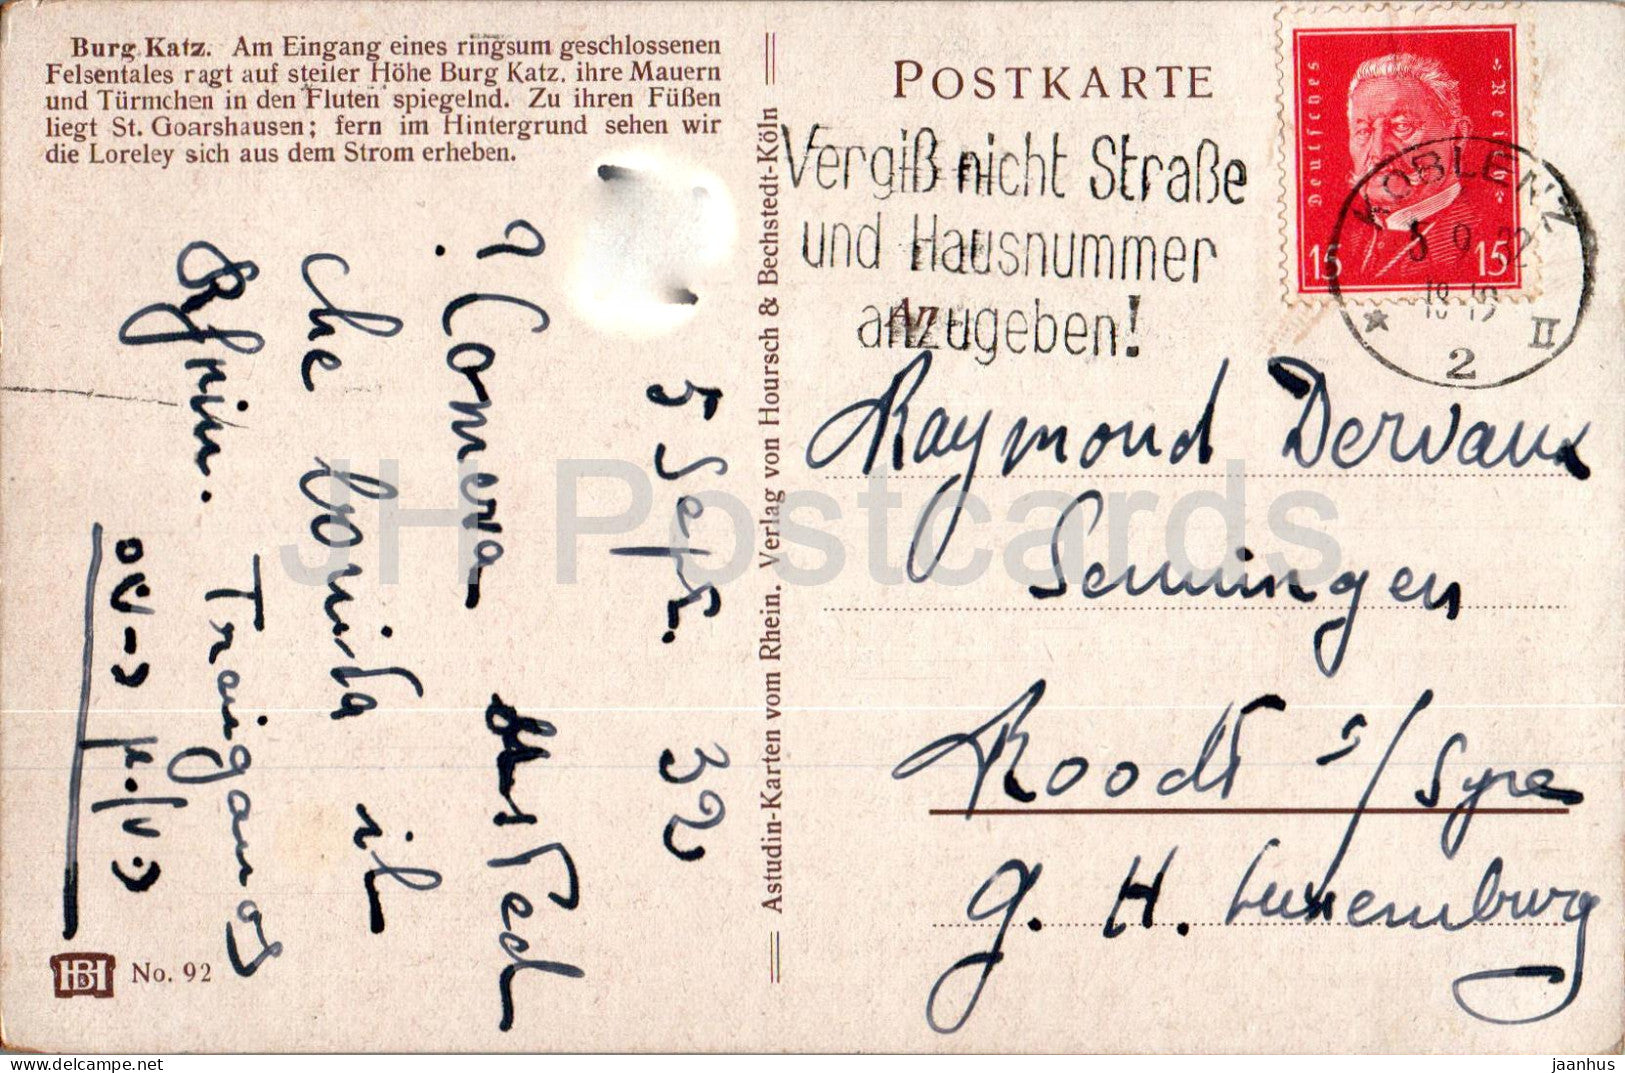 Burg Katz. Am Eingang eines ringsum geschlossenen
Felsentales ragt auf steiler Höhe Burg Katz, ihre Mauern
und Türmchen in den Fluten spiegelnd. Zu ihren Füßen
liegt St. Goarshausen; fern im Hintergrund sehen wir
die Loreley sich aus dem Strom erheben.
5 Sept. 32
che bonita il
Rhin.
No. 92
Astudin-Karten vom Rhein. Verlag von Hoursch & Bechstedt-Köln
POSTKARTE
Vergiß nicht Straße
und Hausnummer
anzugeben!
An
Deutsches Reich
15 15
KOBLENZ
5 9 32
2 II
Raymond Dervaux
Senningen
Roodt s/Syre
G. H. Luxemburg
JH Postcards
jaanhus